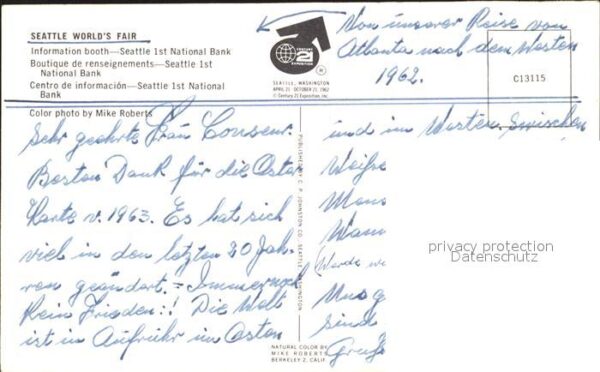 SEATTLE WORLD'S FAIR
Information booth—Seattle 1st National Bank
Boutique de renseignements—Seattle 1st
National Bank
Centro de información—Seattle 1st National
Bank
Color photo by Mike Roberts
CENTURY
21
EXPOSITION
®
SEATTLE, WASHINGTON
APRIL 21 OCTOBER 21, 1962
© Century 21 Exposition, Inc.
Von unserer Reise von
Atlanta nach dem Westen
1962.
C13115
Sehr geehrte Frau
Besten Dank für die Oster
Karte v. 1963. Es hat sich
viel in den letzten 30 Jah-
ren geändert. - Immer noch
Kein Frieden:! Die Welt
ist in Aufruhr im Osten
PUBLISHED BY C. P. JOHNSTON CO. SEATTLE, WASHINGTON
und im Westen. Zwischen
Weiße
(Werde
Uns g
sind
Grüß
privacy protection
Datenschutz
NATURAL COLOR BY
MIKE ROBERTS
BERKELEY 2, CALIF.